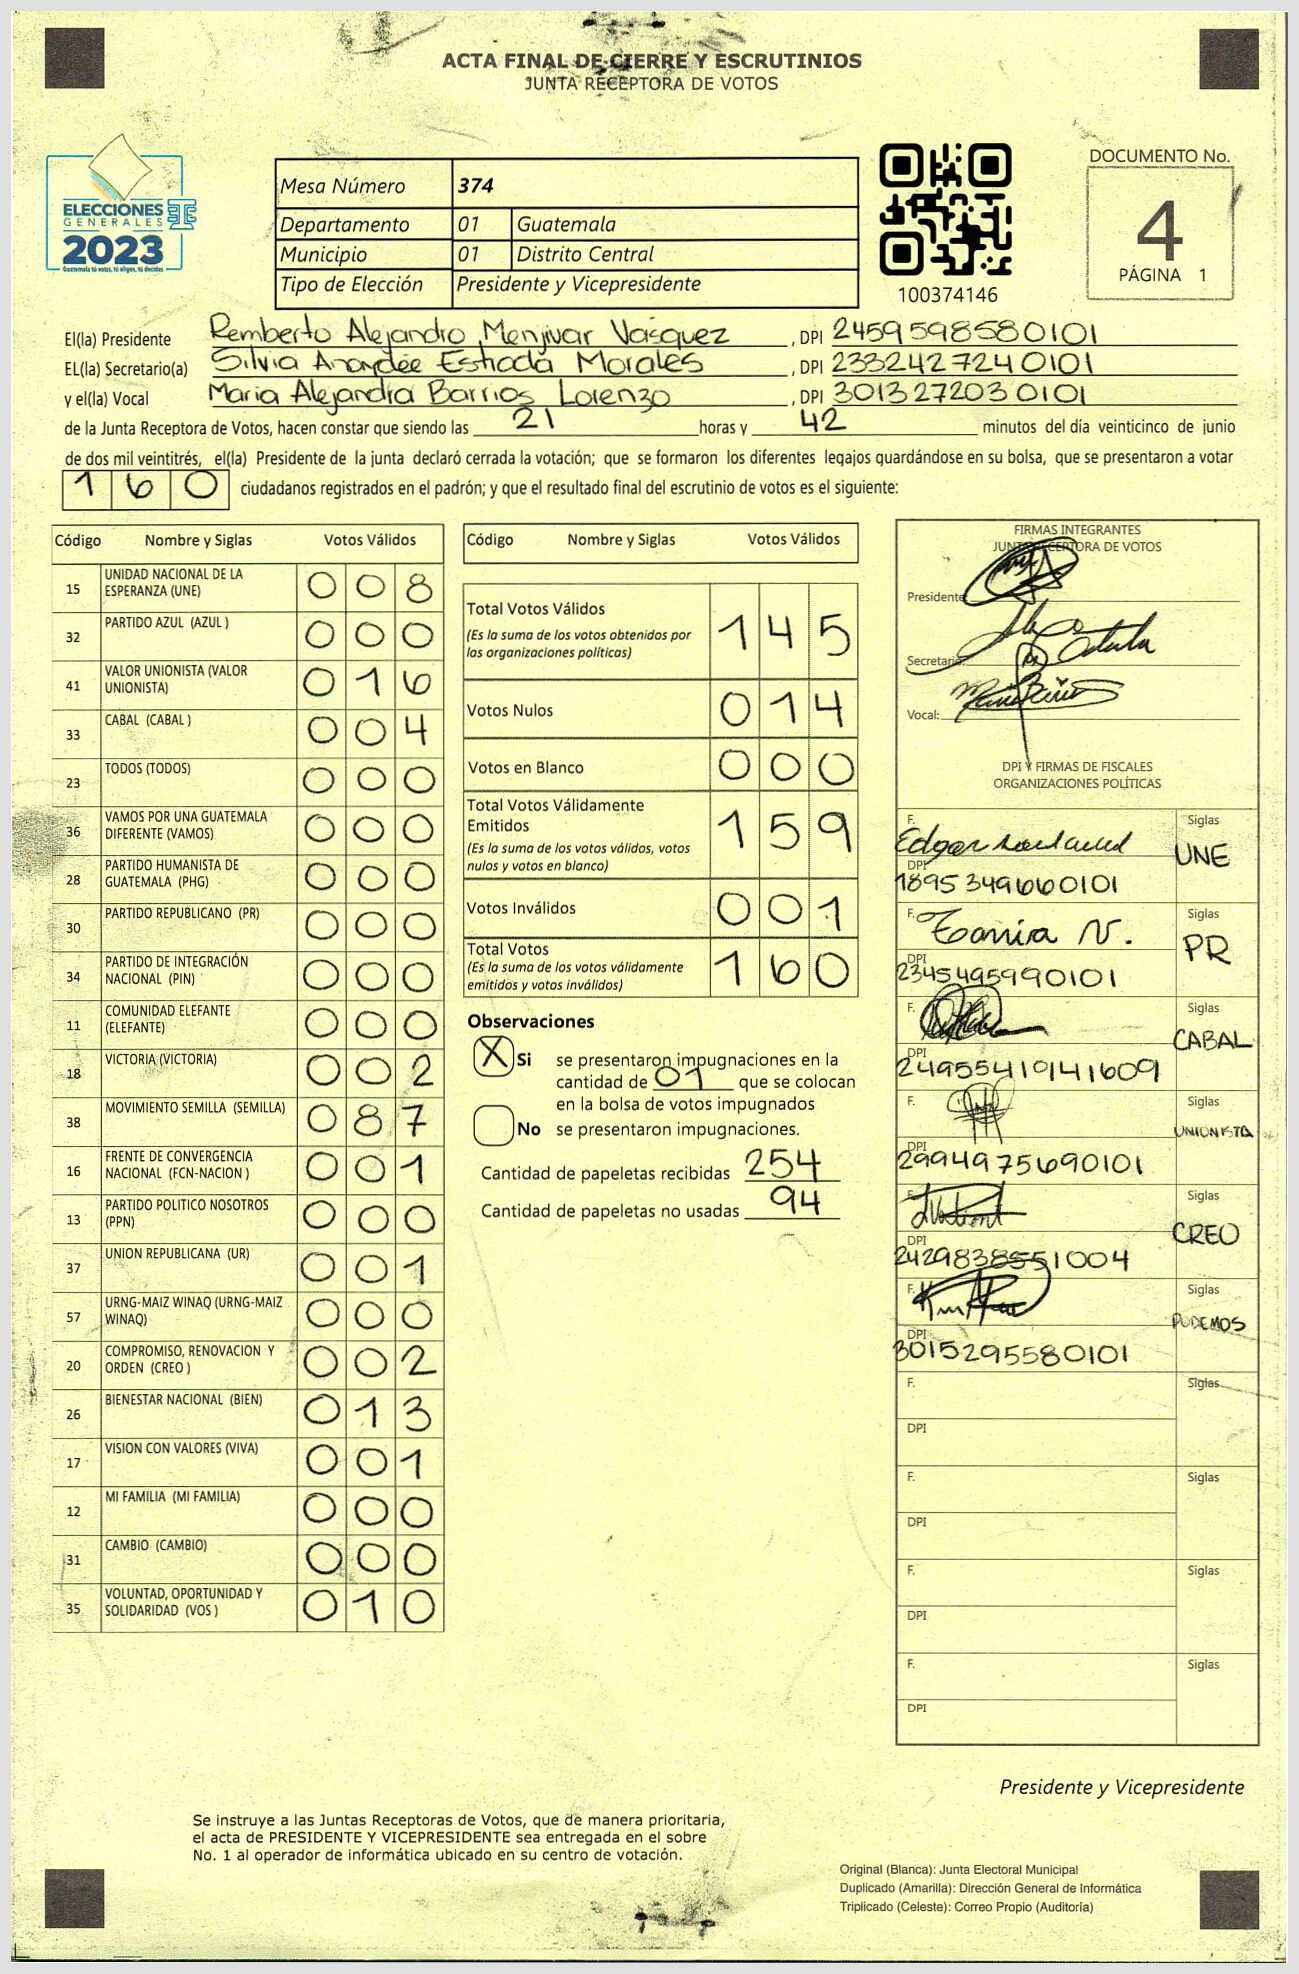 ACTA FINAL DE CIERRE Y ESCRUTINIOS
JUNTA RECEPTORA DE VOTOS
ELECCIONES
GENERALES
2023
Guatemala tú votas, tú eliges, tú decides
Mesa Número 374
Departamento 01 Guatemala
Municipio 01 Distrito Central
Tipo de Elección Presidente y Vicepresidente
100374146
DOCUMENTO No.
4
PÁGINA 1
El(la) Presidente Remberto Alejandro Menjivar Vasquez, DPI 2459598580101
EL(la) Secretario(a) Silvia Estrada Morales, DPI 2332427240101
y el(la) Vocal Maria Alejandra Barrios Lorenzo, DPI 3013272030101
de la Junta Receptora de Votos, hacen constar que siendo las 21 horas y 42 minutos del día veinticinco de junio
de dos mil veintitrés, el(la) Presidente de la junta declaró cerrada la votación; que se formaron los diferentes legajos guardándose en su bolsa, que se presentaron a votar
160 ciudadanos registrados en el padrón; y que el resultado final del escrutinio de votos es el siguiente:
Código Nombre y Siglas Votos Válidos
15 UNIDAD NACIONAL DE LA ESPERANZA (UNE) 008
32 PARTIDO AZUL (AZUL ) 000
41 VALOR UNIONISTA (VALOR UNIONISTA) 016
33 CABAL (CABAL ) 004
23 TODOS (TODOS) 000
36 VAMOS POR UNA GUATEMALA DIFERENTE (VAMOS) 000
28 PARTIDO HUMANISTA DE GUATEMALA (PHG) 000
30 PARTIDO REPUBLICANO (PR) 000
34 PARTIDO DE INTEGRACIÓN NACIONAL (PIN) 000
11 COMUNIDAD ELEFANTE (ELEFANTE) 000
18 VICTORIA (VICTORIA) 002
38 MOVIMIENTO SEMILLA (SEMILLA) 087
16 FRENTE DE CONVERGENCIA NACIONAL (FCN-NACION ) 001
13 PARTIDO POLITICO NOSOTROS (PPN) 000
37 UNION REPUBLICANA (UR) 001
57 URNG-MAIZ WINAQ (URNG-MAIZ WINAQ) 000
20 COMPROMISO, RENOVACION Y ORDEN (CREO ) 002
26 BIENESTAR NACIONAL (BIEN) 013
17 VISION CON VALORES (VIVA) 001
12 MI FAMILIA (MI FAMILIA) 000
31 CAMBIO (CAMBIO) 000
35 VOLUNTAD, OPORTUNIDAD Y SOLIDARIDAD (VOS ) 010
Código Nombre y Siglas Votos Válidos
Total Votos Válidos 145
(Es la suma de los votos obtenidos por
las organizaciones políticas)
Votos Nulos 014
Votos en Blanco 000
Total Votos Válidamente
Emitidos 159
(Es la suma de los votos válidos, votos
nulos y votos en blanco)
Votos Inválidos 001
Total Votos 160
(Es la suma de los votos válidamente
emitidos y votos inválidos)
Observaciones
X Si se presentaron impugnaciones en la
cantidad de 01 que se colocan
en la bolsa de votos impugnados
No se presentaron impugnaciones.
Cantidad de papeletas recibidas 254
Cantidad de papeletas no usadas 94
FIRMAS INTEGRANTES
JUNTA RECEPTORA DE VOTOS
Presidente:
Secretario:
Vocal:
DPI Y FIRMAS DE FISCALES
ORGANIZACIONES POLÍTICAS
F. Edgar Siglas
UNE
DPI 1895349660101
F. Tania N. Siglas
PR
DPI 2345495990101
F. Siglas
CABAL
DPI 2495541941609
F. Siglas
UNIONISTA
DPI 2994975690101
F. Siglas
CREO
DPI 2429838551004
F. Siglas
PODEMOS
DPI 3015295580101
F. Siglas
DPI
F. Siglas
DPI
F. Siglas
DPI
F. Siglas
DPI
Presidente y Vicepresidente
Se instruye a las Juntas Receptoras de Votos, que de manera prioritaria,
el acta de PRESIDENTE Y VICEPRESIDENTE sea entregada en el sobre
No. 1 al operador de informática ubicado en su centro de votación.
Original (Blanca): Junta Electoral Municipal
Duplicado (Amarilla): Dirección General de Informática
Triplicado (Celeste): Correo Propio (Auditoría)